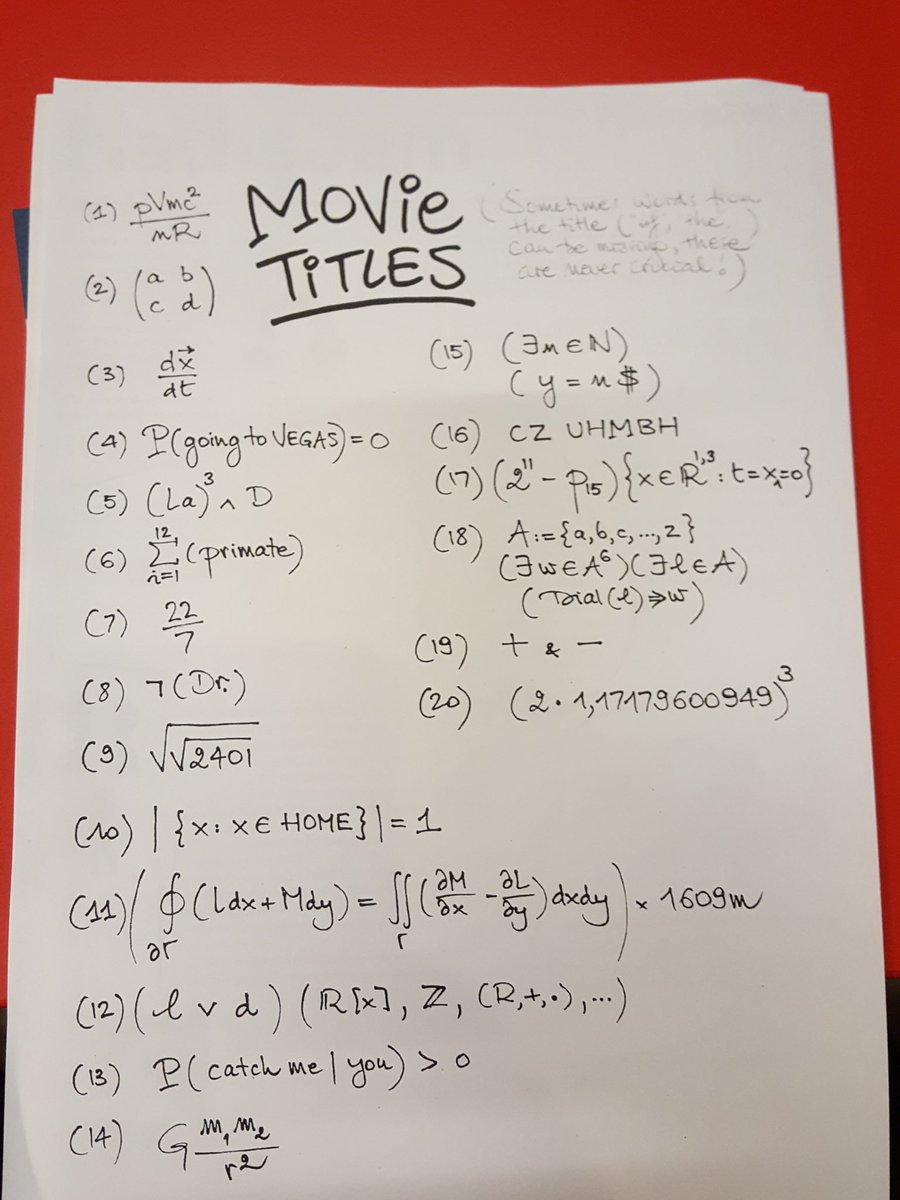 MOVIE
TITLES
(Sometimes words from
the title (of, the..)
can be missing, these
are never crucial!)
(1) pVmc²/nR
(2) (a b
c d)
(3) dx⃗/dt
(4) P(going to VEGAS) = 0
(5) (La)³ ∧ D
(6) ∑_{i=1}^{12} (primate)
(7) 22/7
(8) ¬(Dr.)
(9) √√2401
(10) |{x : x ∈ HOME}| = 1
(11) (∮_{∂Γ} (Ldx + Mdy) = ∬_Γ (∂M/∂x − ∂L/∂y) dxdy) × 1609m
(12) (l ∨ d) (ℝ[x], ℤ, (R,+,·), ...)
(13) P(catch me | you) > 0
(14) G m₁m₂/r²
(15) (∃n ∈ ℕ)
(y = n$)
(16) CZ UHMBH
(17) (2¹¹ − p₁₅) {x ∈ ℝ^{1,3} : t = x₁ = 0}
(18) A := {a, b, c, ..., z}
(∃w ∈ A⁶)(∃l ∈ A)
(Dial(l) ⇒ w)
(19) + & −
(20) (2 · 1,17179600949)³